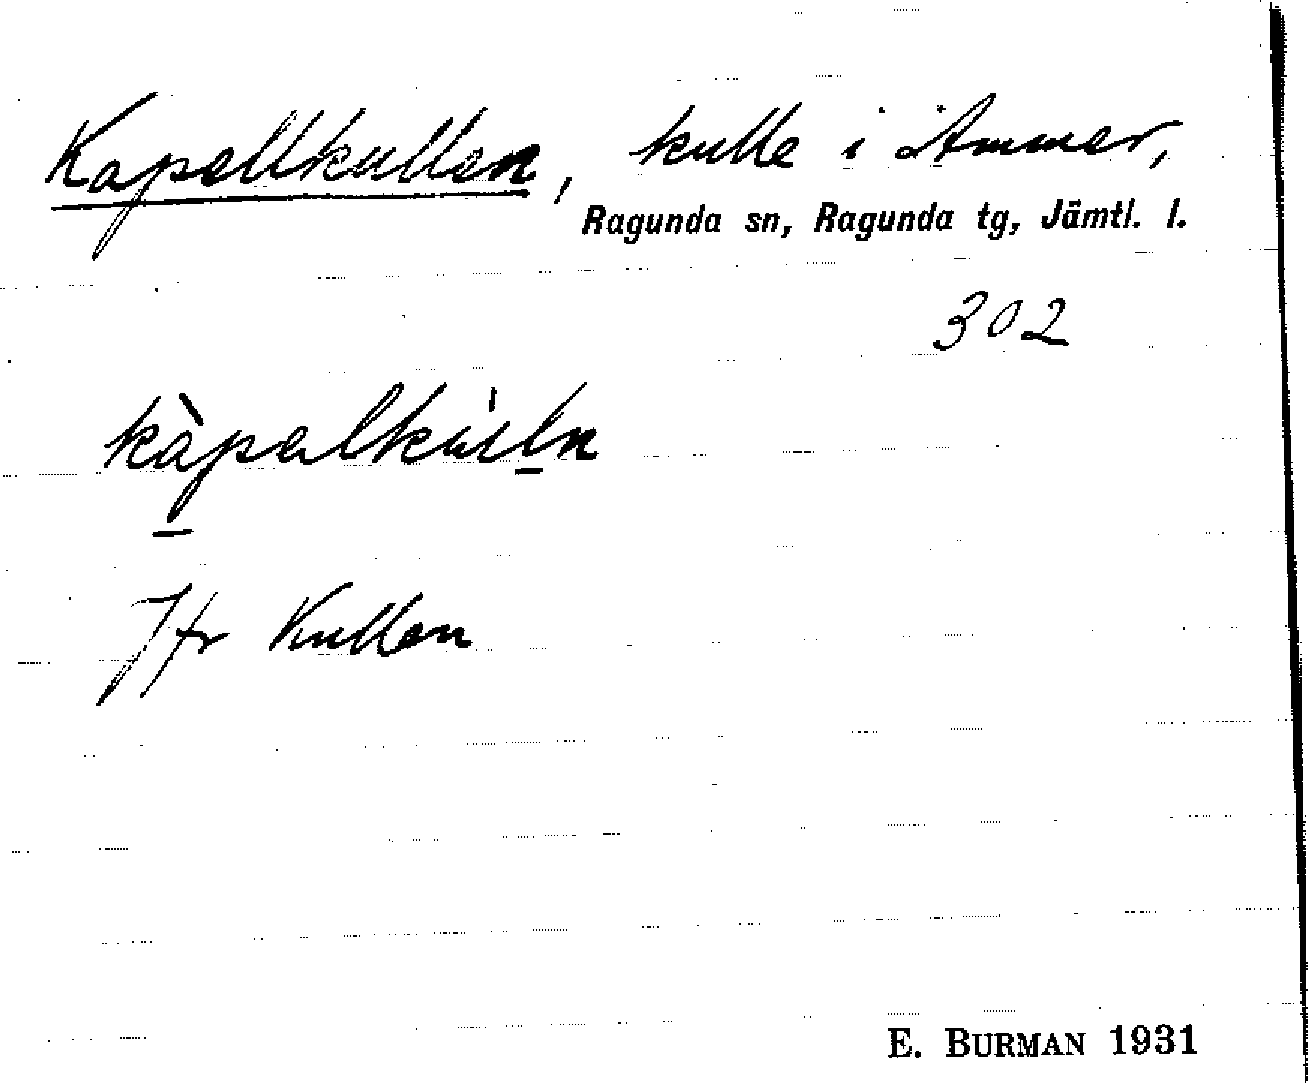 Kapellkullen, kulle i Ammer,
Ragunda sn, Ragunda tg, Jämtl. l.
302
kàpalkùlln
Jfr Kullen
E. BURMAN 1931